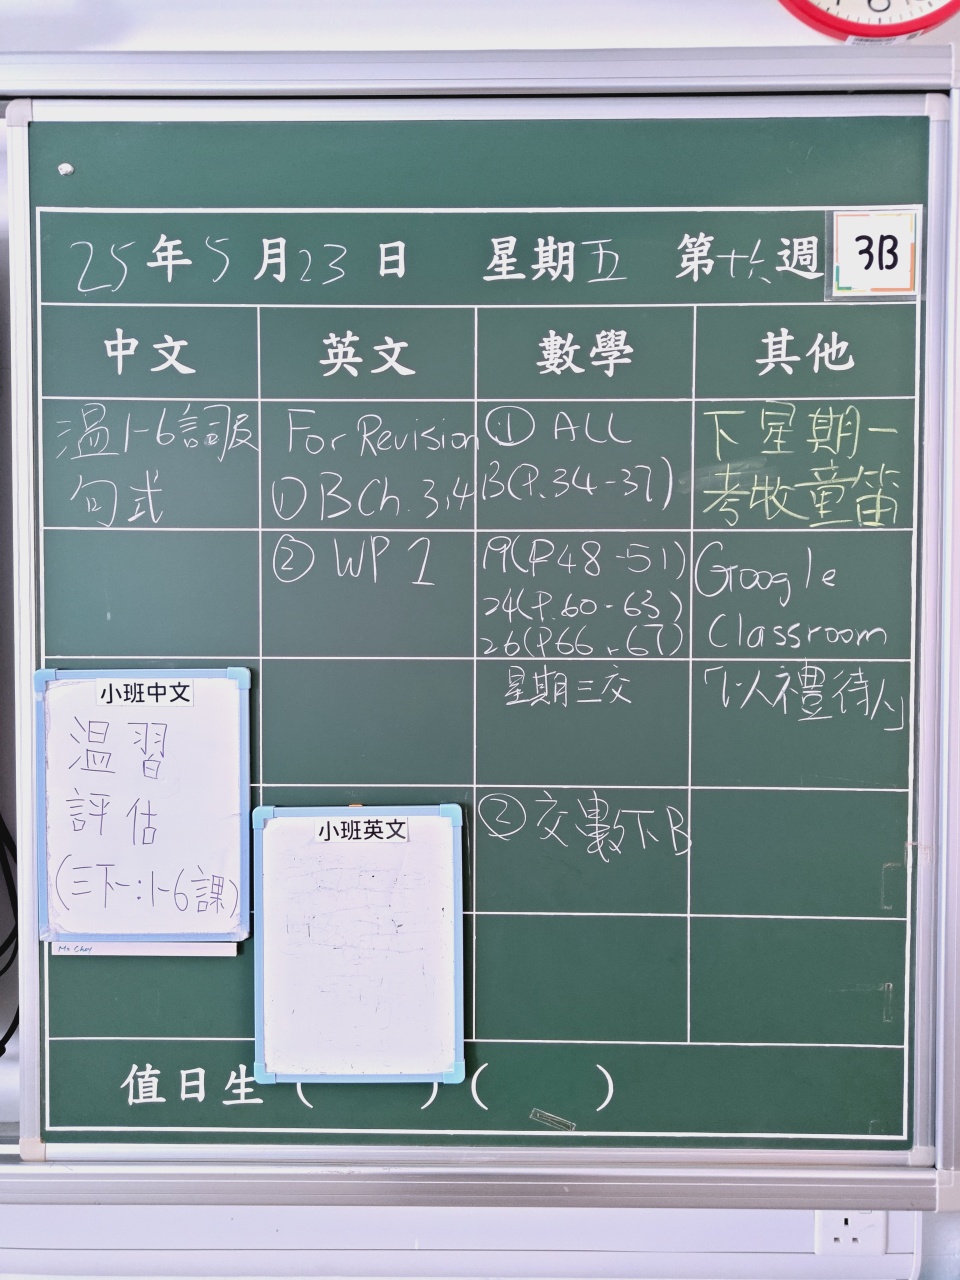 25年5月23日 星期五 第十六週 3B
中文 英文 數學 其他
温1-6詞及
句式
For Revision
① B Ch. 3,4
② WP 2
① ALL
B(P.34-37)
19(P.48-51)
24(P.60-63)
26(P.66,67)
星期三交
② 交數下B
下星期一
考牧童笛
Google
Classroom
「以禮待人」
小班中文
温習
評估
(三下一:1-6課)
小班英文
值日生 ( ) ( )